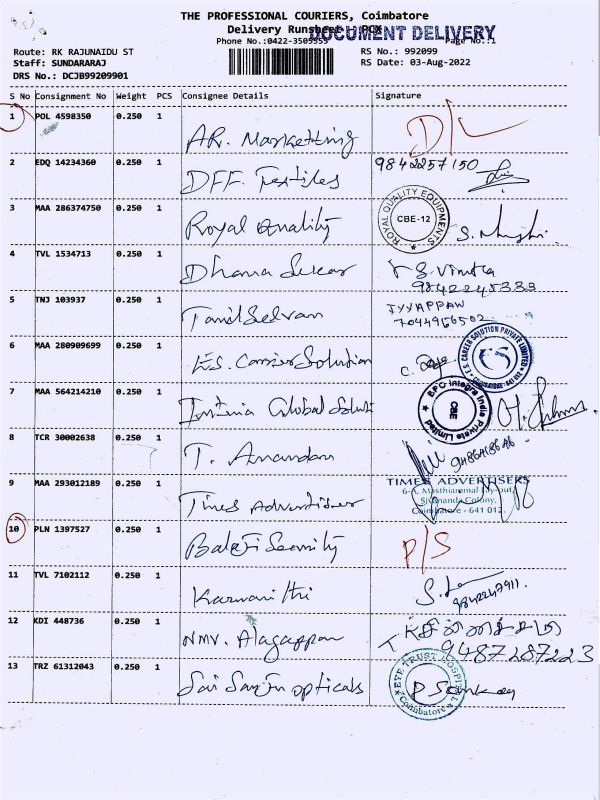 THE PROFESSIONAL COURIERS, Coimbatore
Delivery Runsheet
DOCUMENT DELIVERY
Phone No.:0422-3505555 Page No.:1
Route: RK RAJUNAIDU ST RS No.: 992099
Staff: SUNDARARAJ RS Date: 03-Aug-2022
DRS No.: DCJB99209901
S No Consignment No Weight PCS Consignee Details Signature
1 POL 4598350 0.250 1 AR. Marketting D/L
2 EDQ 14234360 0.250 1 DFF. Textiles 9842257150
3 MAA 286374750 0.250 1 Royal Quality ROYAL QUALITY EQUIPMENTS CBE-12
4 TVL 1534713 0.250 1 Dhana Sekar
9842245333
5 TNJ 103937 0.250 1 Tamil Selvan IYYAPPAN
7044966502
6 MAA 280909699 0.250 1 E.S. Carrier Solution E.S. CAREER SOLUTION PRIVATE LIMITED COIMBATORE-641 012
7 MAA 564214210 0.250 1 Global BPO Integra India Private Limited CBE
8 TCR 30002638 0.250 1 T. Anandan
9 MAA 293012189 0.250 1 Times Advertiser TIMES ADVERTISERS
6-A, Masthiammal Lay-out,
Sivananda Colony,
Coimbatore - 641 012.
10 PLN 1397527 0.250 1 Balaji Security P/S
11 TVL 7102112 0.250 1 9842247911
12 KDI 448736 0.250 1 NMV. Alagappan
9487287223
13 TRZ 61312043 0.250 1 Sai Sanju opticals EYE TRUST HOSPITAL Coimbatore